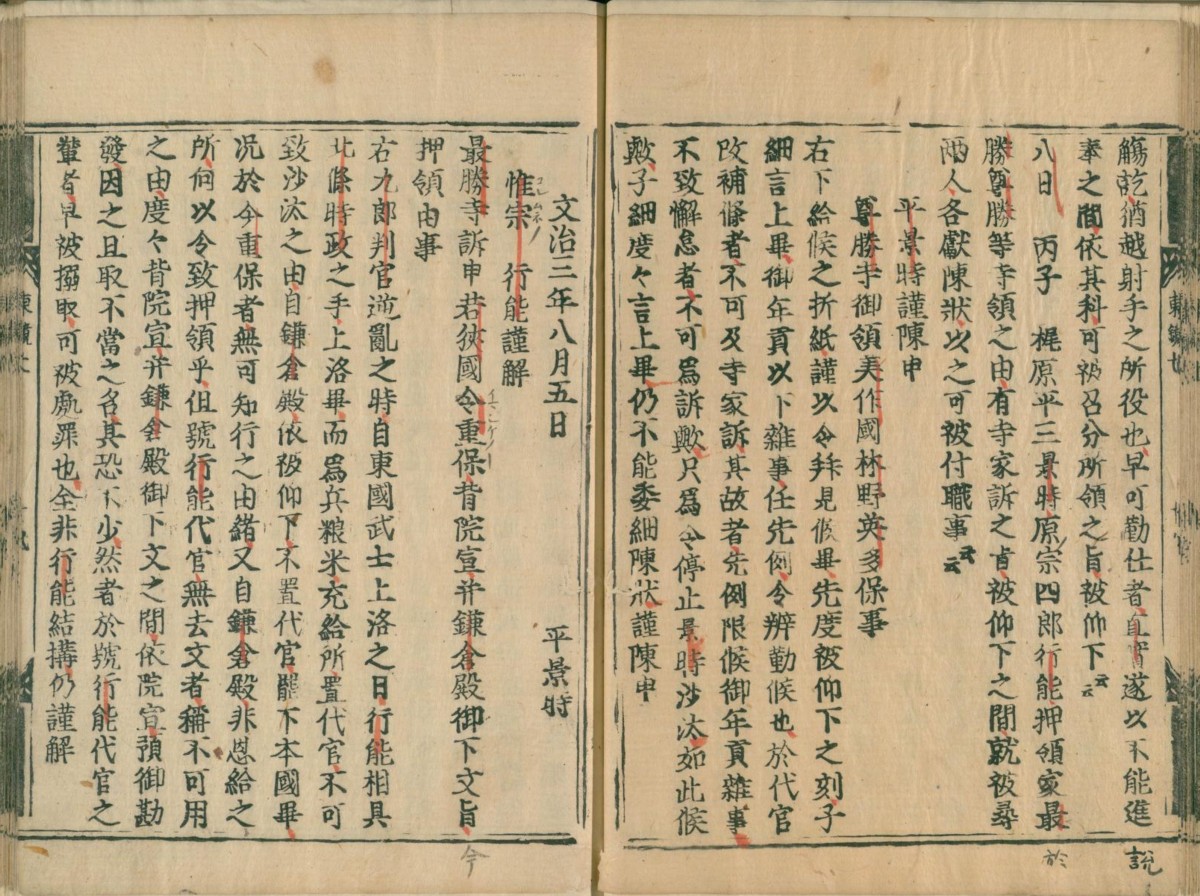 觴訖、猶越射手之所役也、早可勤仕者、直實遂以不能進
奉之間、依其科、可被召分所領之旨、被仰下云云
八日　丙子　梶原平三景時、原宗四郎行能、押領家最
勝尊勝等寺領之由、有寺家訴之旨、被仰下之間、就被尋
兩人、各獻陳狀、以之可被付職事云云
平景時謹陳申
尊勝寺御領美作國林野英多保事
右下給候之折紙、謹以令拜見候畢、先度被仰下之刻、子
細言上畢、御年貢以下雜事、任先例、令辨勤候也、於代官
改補條者、不可及寺家訴、其故者、先例限候御年貢雜事、
不致懈怠者、不可爲訴歟、只爲令停止景時沙汰、如此候
歟、子細度々言上畢、仍不能委細陳狀、謹陳申
文治三年八月五日　平景時
惟宗　行能謹解
最勝寺訴申若狹國今重保、背院宣、并鎌倉殿御下文旨、
押領由事
右九郎判官逆亂之時、自東國武士上洛之日、行能相具
北條時政之手、上洛畢、而爲兵粮米充給所置代官、不可
致沙汰之由、自鎌倉殿、依被仰下、不置代官、罷下本國畢、
况於今重保者、無可知行之由緒、又自鎌倉殿、非恩給之
所、何以令致押領乎、但號行能代官、無去文者、稱不可用
之由、度々背院宣、并鎌倉殿御下文之間、依院宣、預御勘
發、因之且取不當之名、其恐不少、然者於號行能代官之
輩者、早被搦取、可被處罪也、全非行能結搆、仍謹解
説
於
今